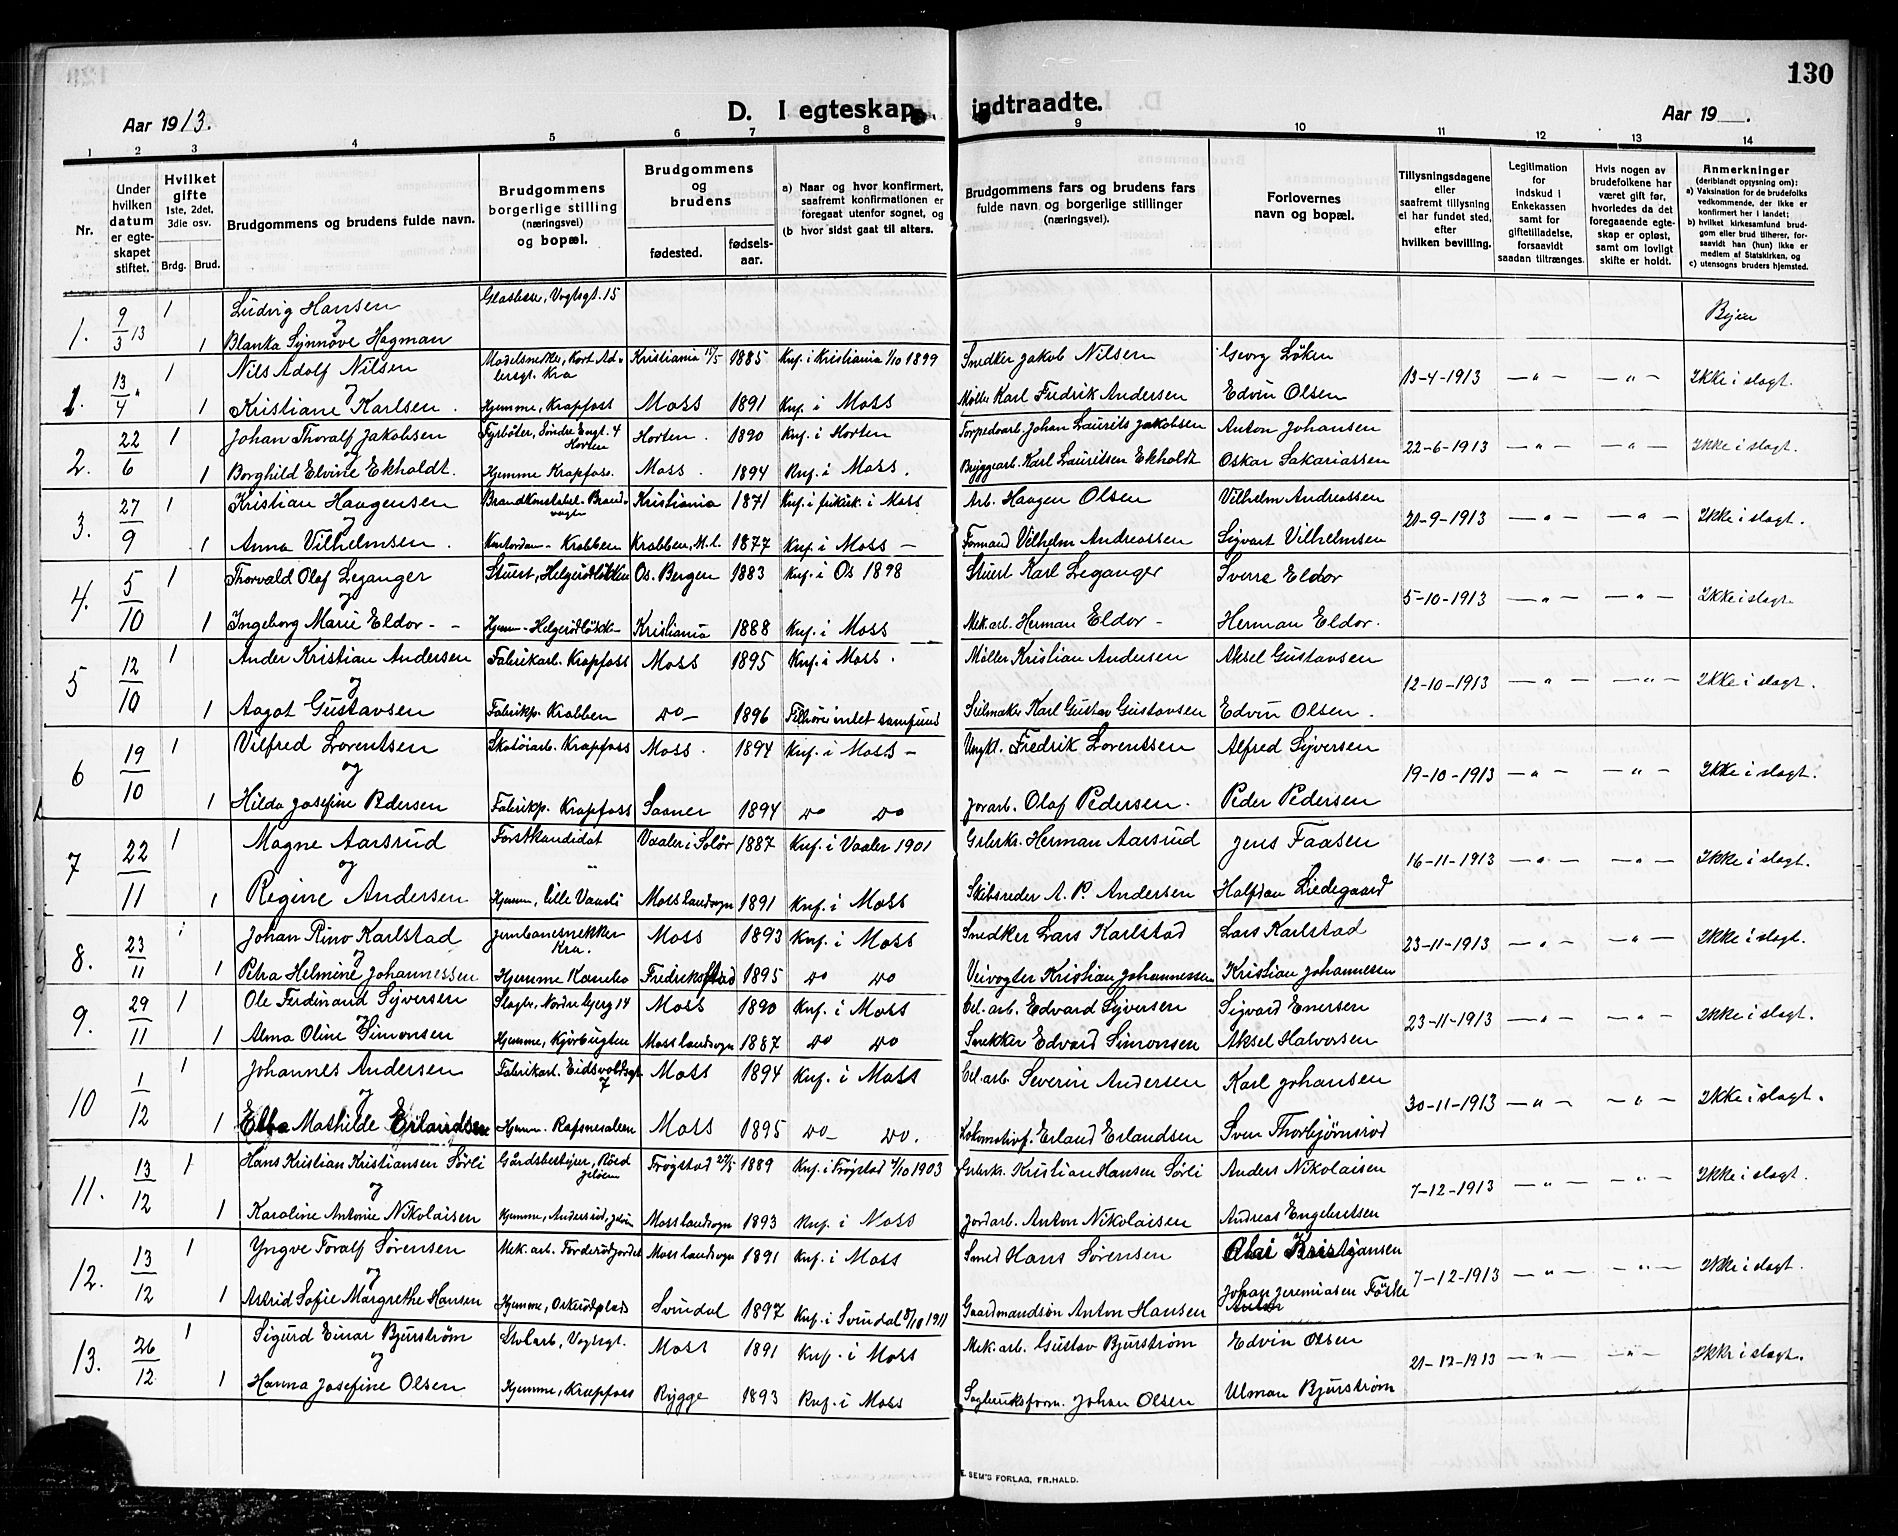 130
Aar 1913.
D. I egteskap indtraadte.
Aar 19 .
1 2 3 4 5 6 7 8 9 10 11 12 13 14
Nr.
Under hvilken datum er egteskapet stiftet.
Hvilket gifte 1ste, 2det, 3die osv.
Brdg. Brud.
Brudgommens og brudens fulde navn.
Brudgommens borgerlige stilling (næringsvei) og bopæl.
Brudgommens og brudens
fødested.
fødselsaar.
a) Naar og hvor konfirmert, saafremt konfirmationen er foregaat utenfor sognet, og
(b hvor sidst gaat til alters.
Brudgommens fars og brudens fars fulde navn og borgerlige stillinger (næringsvei).
Forlovernes navn og bopæl.
Tillysningsdagene eller saafremt tillysning ei har fundet sted, efter hvilken bevilling.
Legitimation for indskud i Enkekassen samt for giftetilladelse, forsaavidt saadan tiltrænges.
Hvis nogen av brudefolkene har været gift før, hvorledes da det foregaaende egteskap er opløst, samt om lovligt skifte er holdt.
Anmerkninger (deriblandt opjysning om): a) Vaksination for de brudefolks vedkommende, der ikke er konfirmert her i landet; b) hvilket kirkesamfund brudgom eller brud tilhører, forsaavidt han (hun) ikke er medlem af Statskirken, og c) utensogns bruders hjemsted.
1. 9/3 13 1 Ludvig Hansen Vogtsgt. 15 Byen
og
1 Blanka Synnøve Hagman
1. 13/4 " 1 Nils Adolf Nilsen Kristiania 11/5 1885 Knf. i Kristiania 1/10 1899 Snedker Jakob Nilsen Georg Løken
og 13-4-1913 — " — — " — Ikke i slagt.
1 Kristiane Karlsen. Hjemme, Krapfoss Moss 1891 Knf. i Moss Møller Karl Fredrik Andersen Edvin Olsen
2. 22/6 1 Johan Thoralf Jakobsen Fyrbøter, Søndre Engt. 4 Horten Horten. 1890 Knf. i Horten Torpedoarb. Johan Laurits Jakobsen Anton Johansen
og 22-6-1913 — " — " — Ikke i slagt.
1 Borghild Elvine Ekholdt. Hjemme Krapfoss. Moss. 1894 Knf. i Moss. Bryggearb. Karl Lauritsen Ekholdt Oskar Sakariassen
3. 27/9 1 Kristian Haagensen Brandkonstabel. Brandvagten Kristiania 1871 Knf. i frikirk. i Moss Arb. Haagen Olsen Vilhelm Andreassen
og 21-9-1913 — " — — " — Ikke i slagt.
1 Anna Vilhelmsen. Krabben Krabben, M.l. 1877 Knf. i Moss — Formand Vilhelm Andreassen Sigvart Vilhelmsen
4. 5/10 1 Thorvald Olaf Leganger Stuert, Helgerødløkken Os. Bergen 1883 Knf. i Os 1898 Stuert Karl Leganger Sverre Eldor
og 5-10-1913 — " — — " — Ikke i slagt.
1 Ingeborg Marie Eldor - - Hjemm - Helgerødløkk- Kristiania 1888 Knf. i Moss Mek. arb. Herman Eldor - Herman Eldor.
5 12/10 1 Ander Kristian Andersen Fabrikarb. Krapfoss Moss 1895 Knf. i Moss. Møller Kristian Andersen Aksel Gustavsen
og 12-10-1913 — " — — " — Ikke i slagt.
1 Aagot Gustavsen Fabrikp. Krabben do — 1896 Tilhører intet samfund Seilmaker Karl Gustav Gustavsen Edvin Olsen.
6 19/10 1 Vilfred Lorentsen Skotøiarb. Krapfoss Moss. 1894 Knf. i Moss — Ungkl. Fredrik Lorentsen Alfred Syversen
og 19-10-1913 — " — — " — Ikke i slagt.
1 Hilda Josefine Pedersen Fabrikp. Krapfoss Saaner 1894 do do Jorarb. Olaf Pedersen. Peder Pedersen
7 22/11 1 Magne Aarsrud Forstkandidat Vaaler i Solør 1887 Knf. i Vaaler 1901 Grbrkr. Herman Aarsrud Jens Faasen
og " 16-11-1913 — " — — " — Ikke i slagt.
1 Regine Andersen Hjemm, lille Vansli Moss landsogn 1891 Knf. i Moss Skibsreder A. P. Andersen Halfdan Liedegaard
8. 23/11 1 Johan Rino Karlstad Jernbanesnekker Kra. Moss 1893 Knf. i Moss Snedker Lars Karlstad Lars Karlstad
og 23-11-1913 — " — — " — Ikke i slagt.
1 Petra Helmine Johannessen Hjemme Kambo Fredrikstad 1895 do do Veivogter Kristian Johannessen Kristian Johannessen
9. 29/11 1 Ole Ferdinand Syversen Slagter, Nordre bjerg 14 Moss 1890 Knf. i Moss Cel. arb. Edvard Syversen Sigvard Enersen
og 23-11-1913 — " — — " — Ikke i slagt.
1 Alma Oline Simonsen Hjemme, Kjørbugten Moss landsogn 1887 do do Snekker Edvard Simonsen Aksel Halvorsen
10 1/12 1 Johannes Andersen Fabrikarb. Eidsvoldsgt 7 Moss 1894 Knf. i Moss Cel. arb. Severin Andersen Karl Johansen
og 30-11-1913 — " — — " — Ikke i slagt.
1 Ebba Mathilde Erlandsen Hjemm. Rafsnesaleen Moss 1895 do — do. Lokomotivf. Erland Erlandsen Sven Thorbjørnsrød
11. 13/12 1 Hans Kristian Kristiansen Sørli Gårdsbestyrer, Röed Jeløen Trøgstad 27/5 1889 Knf. i Trøgstad 4/10 1903 Grbrkr. Kristian Hansen Sørli Anders Nikolaisen
og 7-12-1913 — " — — " — Ikke i slagt.
1 Karoline Antonie Nikolaisen Hjemme, Andersrød, Jeløen Moss landsogn 1893 Knf. i Moss Jordarb. Anton Nikolaisen Andreas Engebretsen
12. 13/12 1 Yngve Toralf Sørensen Mek. arb. Torderødjordet Moss landsogn 1891 Knf. i Moss Smed Hans Sørensen Olai Kristjansen
og 7-12-1913 — " — — " — Ikke i slagt.
1 Astrid Sofie Margrethe Hansen Hjemme, Oskerødplads Svindal 1897 Knf. i Svindal 8/10 1911 Gaardmandsøn Anton Hansen Johan Jeremiasen
13. 26/12 1 Sigurd Einar Bjurstrøm Stolarb, Vogtsgt. Moss 1891 Knf. i Moss Mek. arb. Gustav Bjurstrøm Edvin Olsen
og 21-12-1913 — " — — " — Ikke i slagt.
1 Hanna Josefine Olsen Hjemme, Krapfoss Rygge 1893 Knf. i Moss Sagbruksform. Johan Olsen Ulman Bjurstrøm
E. SEM'S FORLAG, FR.HALD.